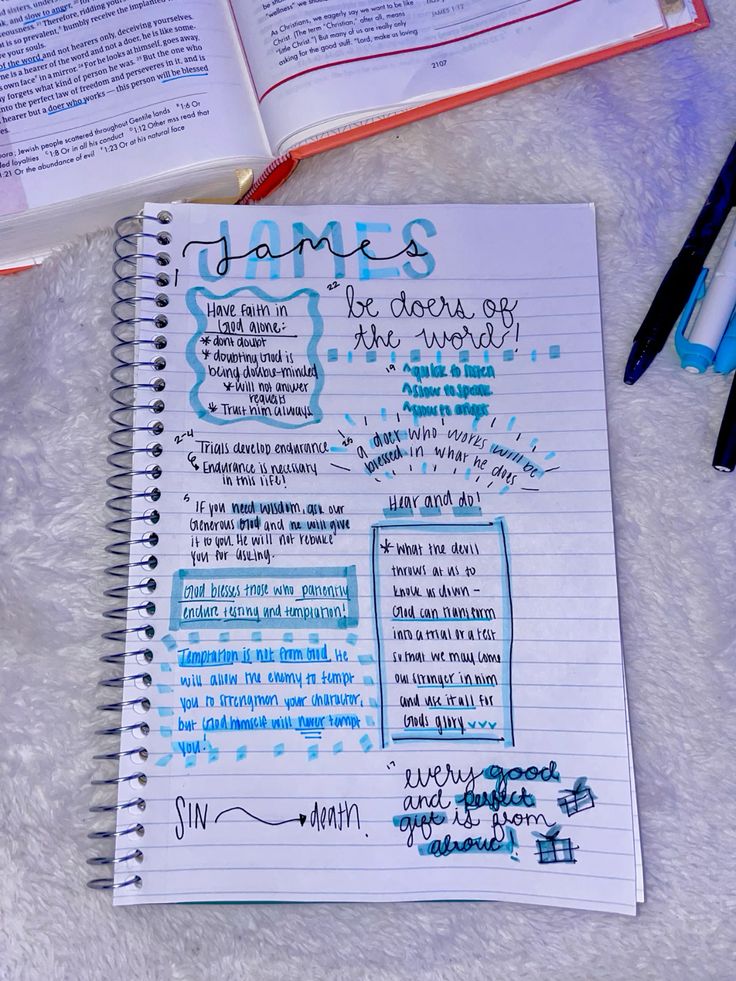 sisters, under
and, slow to anger, for
eousness. 21 Therefore, ridding yours
at is so prevalent, humbly receive the implanted
ve your souls.
of the word and not hearers only, deceiving yourselves.
ne is a hearer of the word and not a doer, he is like some-
own face in a mirror. 24 For he looks at himself, goes away,
y forgets what kind of person he was. 25 But the one who
into the perfect law of freedom and perseveres in it, and is
l hearer but a doer who works — this person will be blessed
es.
; Jewish people scattered throughout Gentile lands 1:6 Or
ded loyalties 1:8 Or in all his conduct 1:12 Other mss read that
1:21 Or the abundance of evil 1:23 Or at his natural face
"wellness"
As Christians, we eagerly say we want to be like
Christ. (The term "Christian," after all, means
"Little Christ.") But many of us are really only
asking for the good stuff: "Lord, make us loving
JAMES 1:12
2107
JAMES
James
1
Have faith in
God alone:
* dont doubt
* doubting God is
being double-minded
* Will not answer
requests
* Trust him always
22 be doers of
the word!
19 ^quick to listen
^slow to speak
^slow to anger
2-4 Trials develop endurance
Endurance is necessary
in this life!
25 a doer who works will be
blessed in what he does
5 If you need wisdom, ask our
Generous God and he will give
it to you. He will not rebuke
you for asking.
Hear and do!
God blesses those who patiently
endure testing and temptation!
Temptation is not from God. He
will allow the enemy to tempt
you to strengthen your character,
but God himself will never tempt
you!
* What the devil
throws at us to
knock us down -
God can transform
into a trial or a test
so that we may come
out stronger in him
and use it all for
Gods glory
SIN death.
every good
and perfect
gift is from
above!